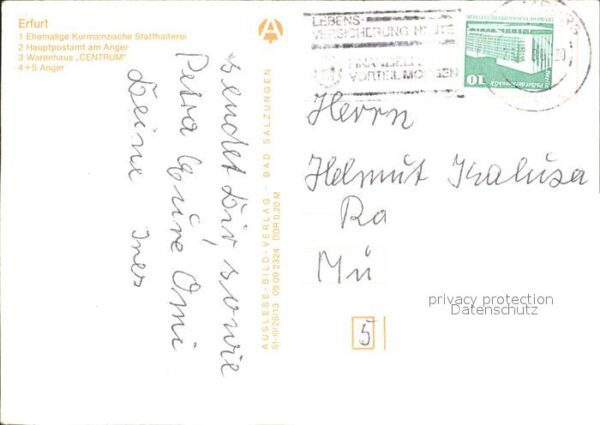 Erfurt
1 Ehemalige Kurmainzische Statthalterei
2 Hauptpostamt am Anger
3 Warenhaus „CENTRUM"
4+5 Anger
sendet Dir, sowie
Petra Eure Omi
Deine Ines
AUSLESE-BILD-VERLAG · BAD SALZUNGEN
09 09 2324 DDR 0,20 M
LEBENS-
VERSICHERUNG HEUTE
VORTEIL MORGEN
10
Herrn
Helmut Kaluza
Ra
Mü
5
privacy protection
Datenschutz